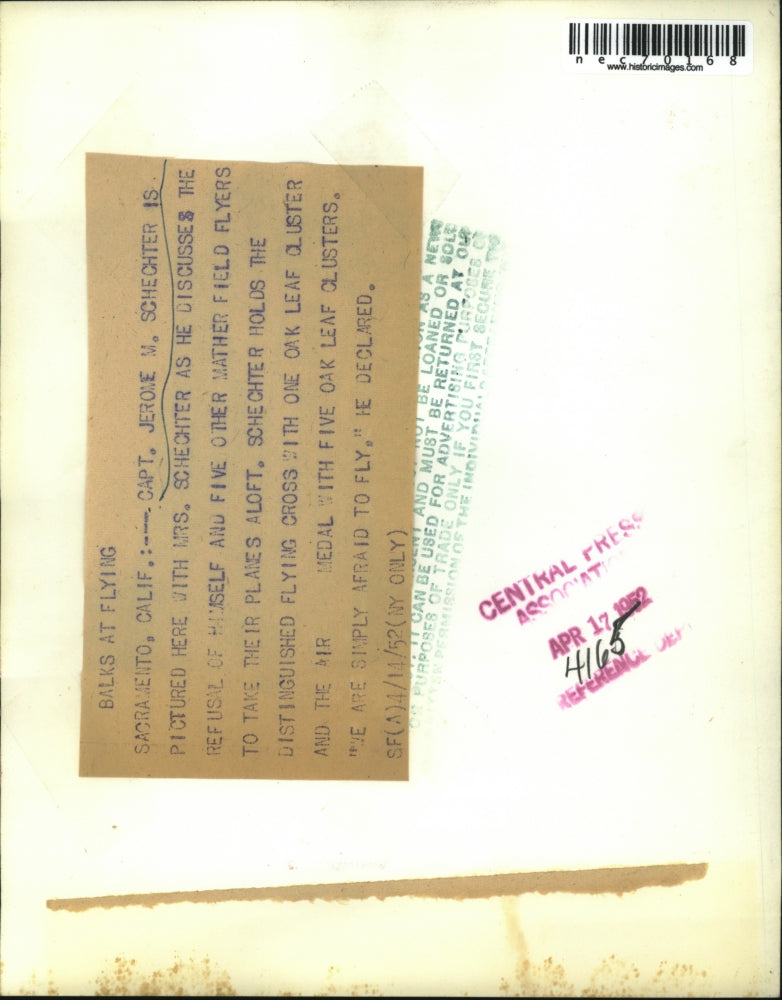 nec70168
www.historicimages.com
BALKS AT FLYING
SACRAMENTO, CALIF.:---CAPT. JEROME M. SCHECHTER IS
PICTURED HERE WITH MRS. SCHECHTER AS HE DISCUSSES THE
REFUSAL OF HIMSELF AND FIVE OTHER MATHER FIELD FLYERS
TO TAKE THEIR PLANES ALOFT. SCHECHTER HOLDS THE
DISTINGUISHED FLYING CROSS WITH ONE OAK LEAF CLUSTER
AND THE AIR MEDAL WITH FIVE OAK LEAF CLUSTERS.
"WE ARE SIMPLY AFRAID TO FLY," HE DECLARED.
SF(A)4/14/52(NY ONLY)
AS A NEWS
NOT BE LOANED OR SOLD
AND MUST BE RETURNED AT OUR
IT CAN BE USED FOR ADVERTISING PURPOSES OR
PURPOSES OF TRADE ONLY IF YOU FIRST SECURE
PERMISSION OF THE
CENTRAL PRESS
ASSOCIATION
APR 17 1952
4165
REFERENCE DEPT